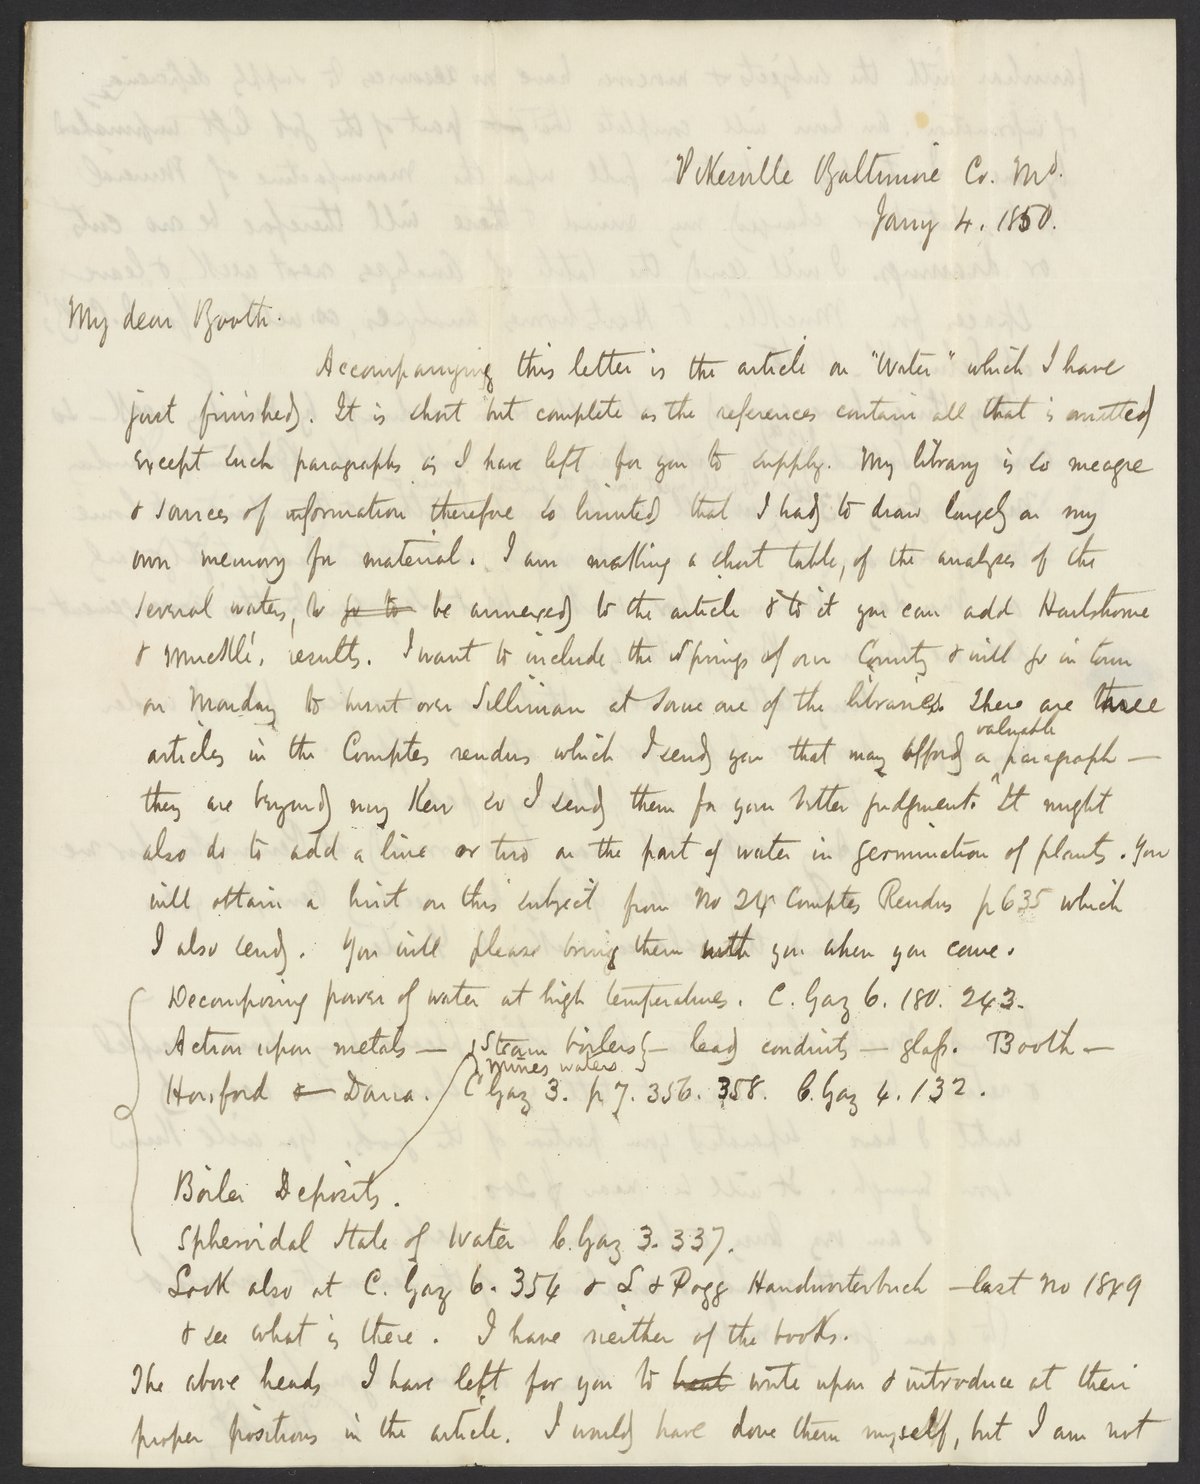 Pikesville Baltimore Co. Md.
Jany 4. 1850.
My dear Booth.
Accompanying this letter is the article on "Water" which I have
just finished. It is short but complete as the references contain all that is omitted
except such paragraphs as I have left for you to supply. My library is so meagre
& sources of information therefore so limited that I had to draw largely on my
own memory for material. I am making a short table, of the analyses of the
several waters, to go to be annexed to the article & to it you can add Hartshorne
& Muckle's results. I want to include the Springs of our County & will go in town
on Monday to hunt over Silliman at some one of the libraries. There are three
articles in the Comptes rendus which I send you that may afford a valuable paragraph —
they are beyond my Ken so I send them for your better judgment. It might
also do to add a line or two on the part of water in germination of plants. You
will obtain a hint on this subject from No 24 Comptes Rendus p 635 which
I also send. You will please bring them with you when you come.
Decomposing power of water at high temperatures. C. Gaz 6. 180. 243.
Action upon metals — Steam boilers — lead conduits — glass. Booth —
mines waters
Horsford & Dana. C Gaz 3. p 7. 356. 358. C. Gaz 4. 132.
Boiler Deposits.
Spheroidal State of Water C. Gaz 3. 337.
Look also at C. Gaz 6. 354 & L & Pogg Handworterbuch — last No 1849
& see what is there. I have neither of the books.
The above heads I have left for you to write upon & introduce at their
proper positions in the article. I would have done them myself, but I am not